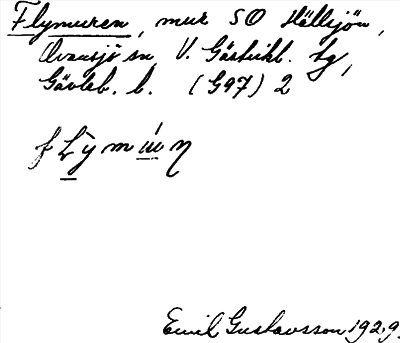 Flymuren, mur SO Hällsjön,
Årsunda sn V. Gästrikl. tg,
Gävleb. l. (G97) 2
fLỳmúrn
Emil Gustavsson 1929